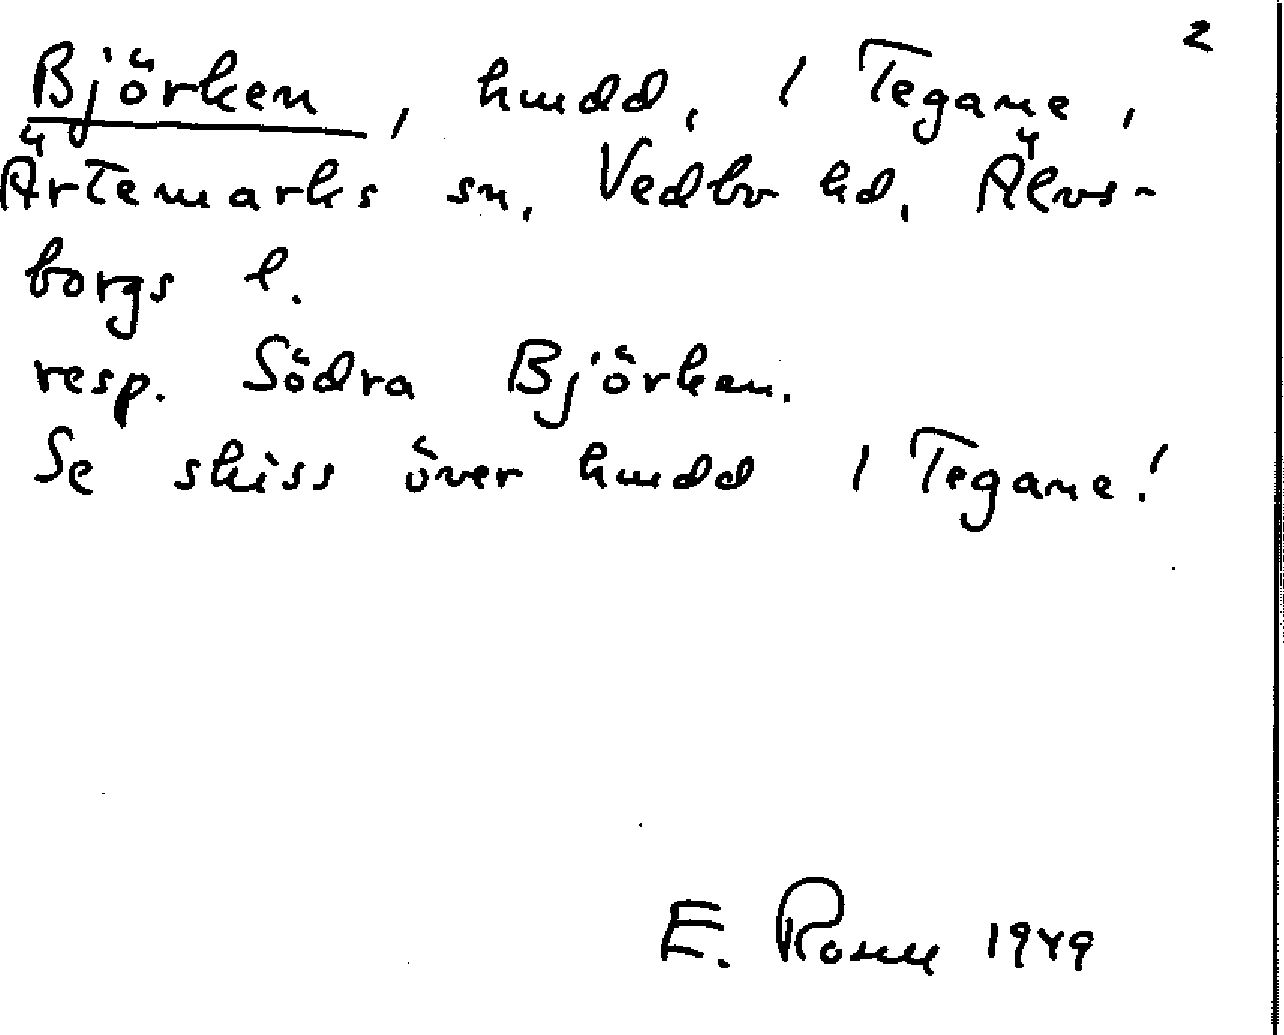 2
Björken, hmdd, 1 Tegane,
Ärtemarks sn, Vedbo hd, Älvs-
borgs l.
resp. Södra Björken.
Se skiss över hmdd 1 Tegane!
E. Rosell 1949